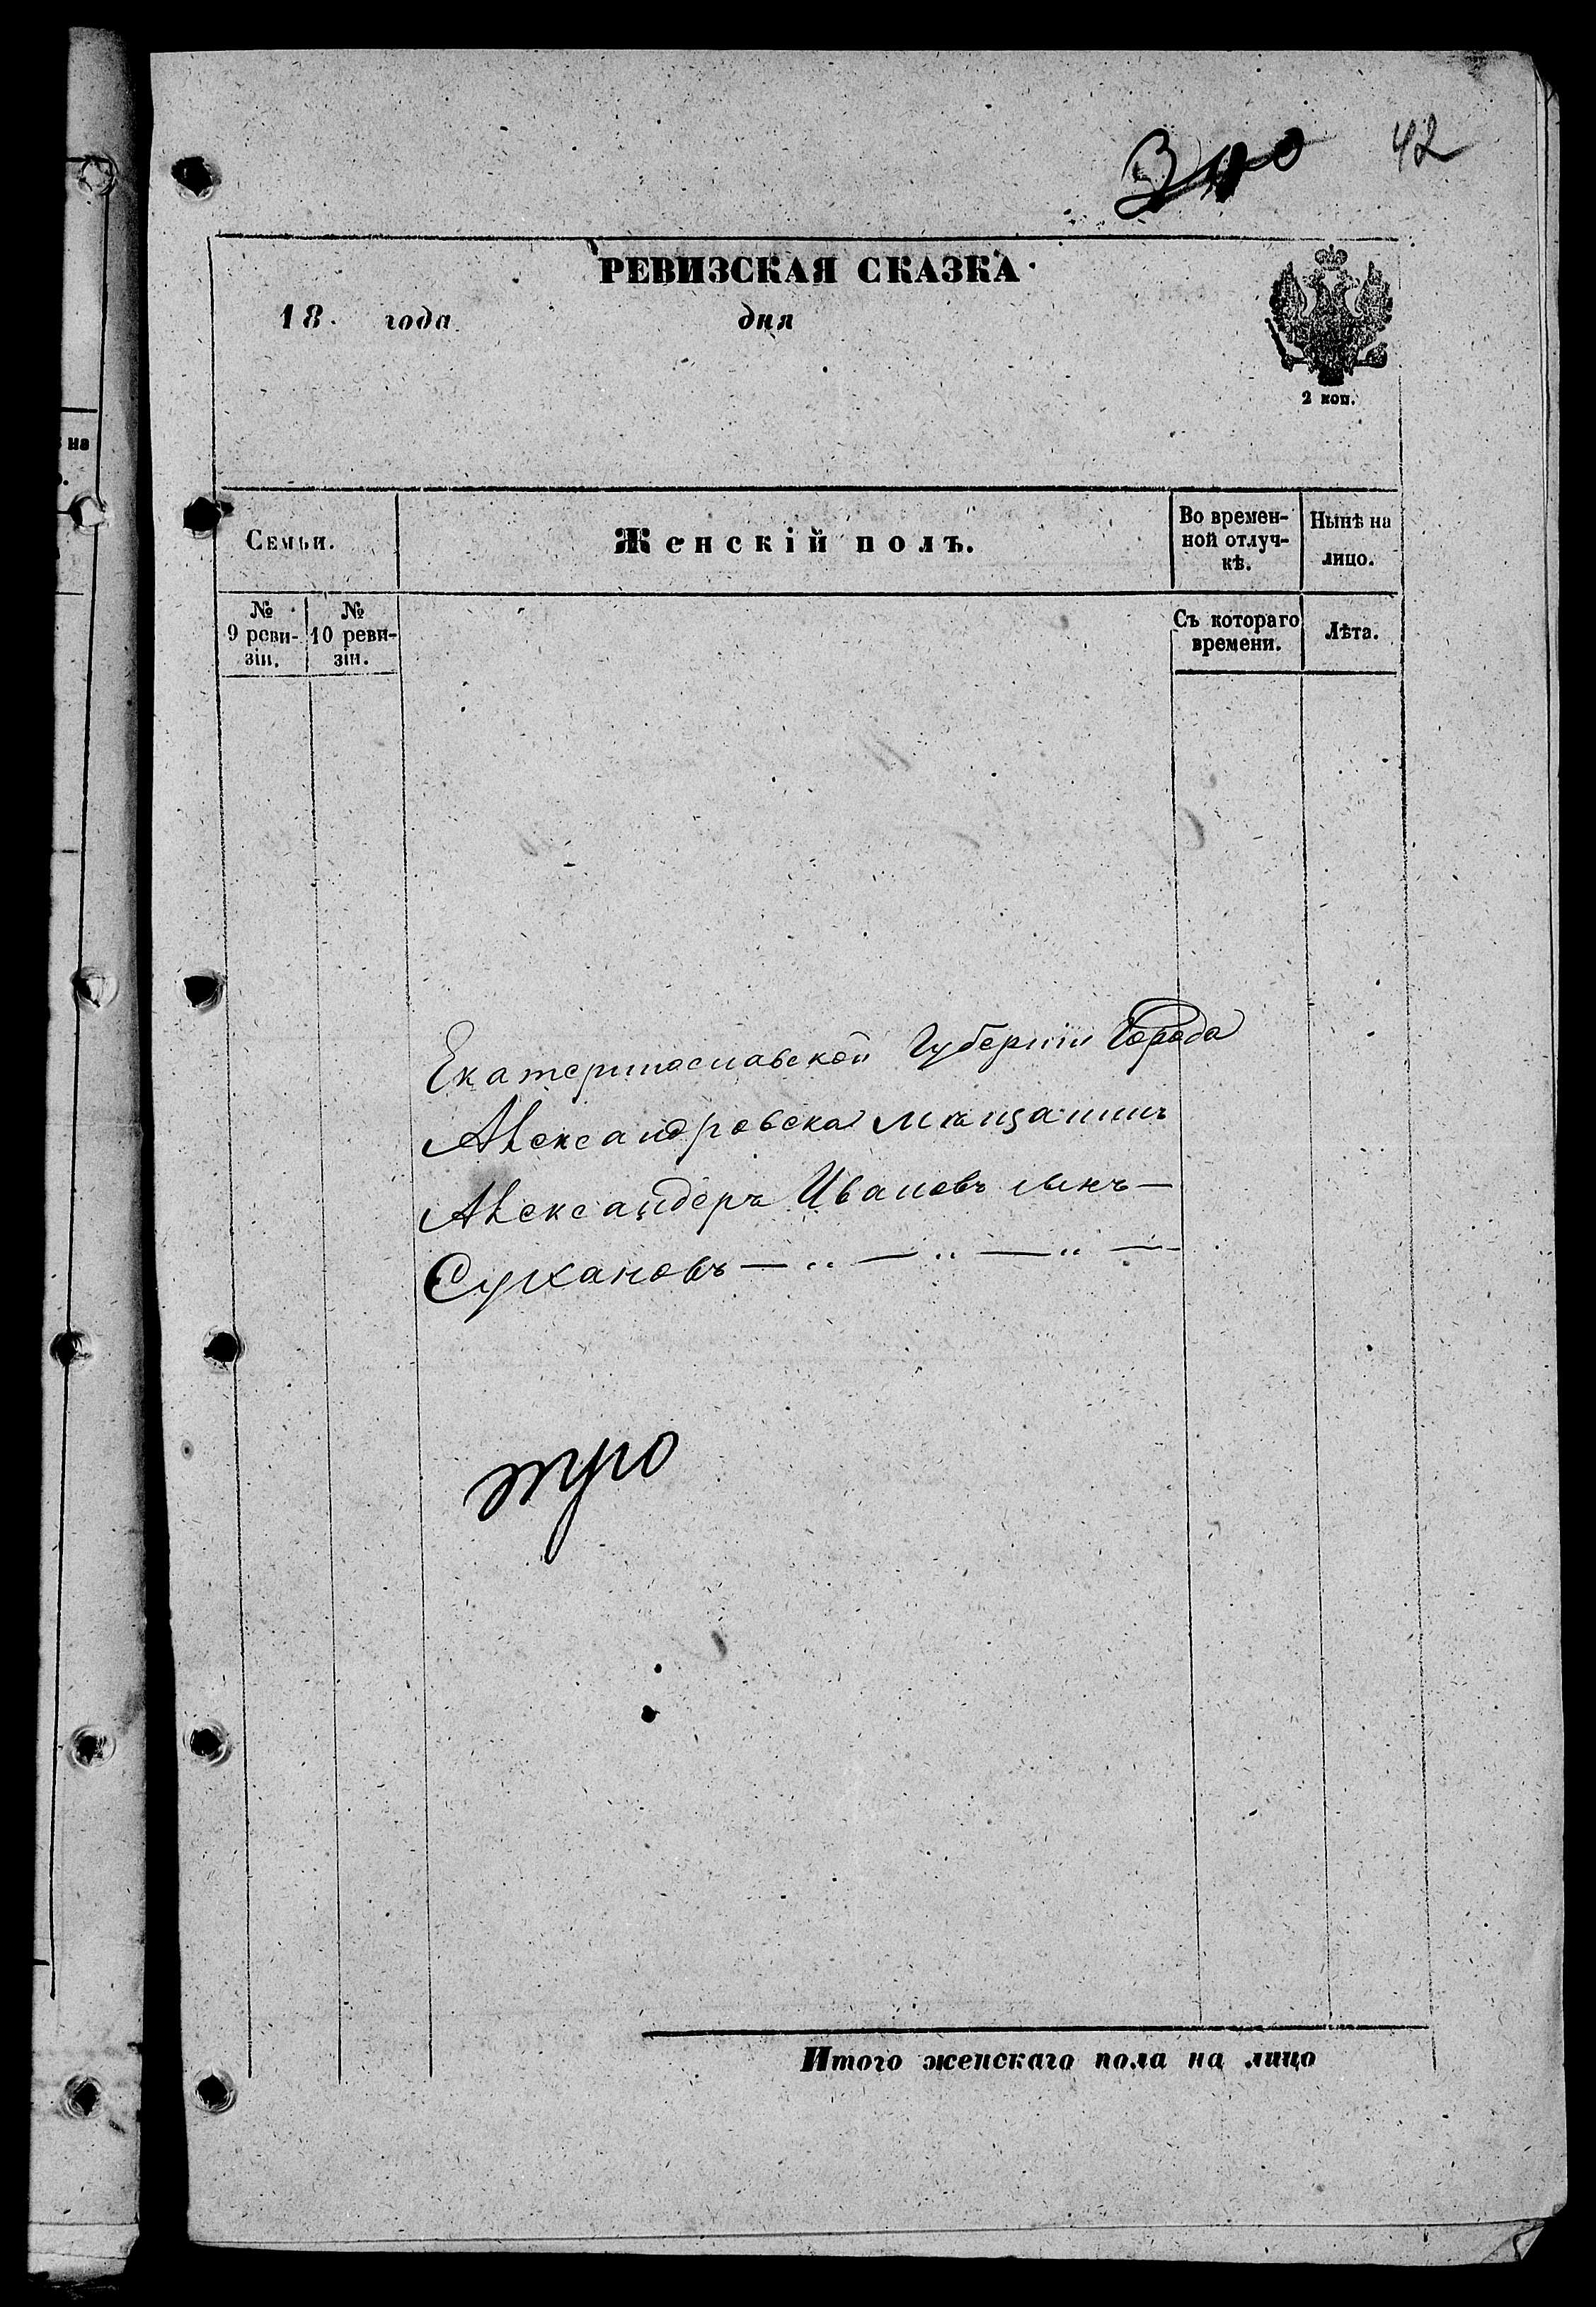 42
РЕВИЗСКАЯ СКАЗКА
18 года дня
2 коп.
Семьи.
Женскій полъ.
Во времен-
ной отлуч-
кѣ.
Нынѣ на
лицо.
№
9 реви-
зіи.
№
10 реви-
зіи.
Съ котораго
времени.
Лѣта.
Екатеринославской Губерніи Города
Александровска мѣщанинъ
Александеръ Ивановъ сынъ —
Сухановъ — „ — „ — „ —
Итого женскаго пола на лицо
на